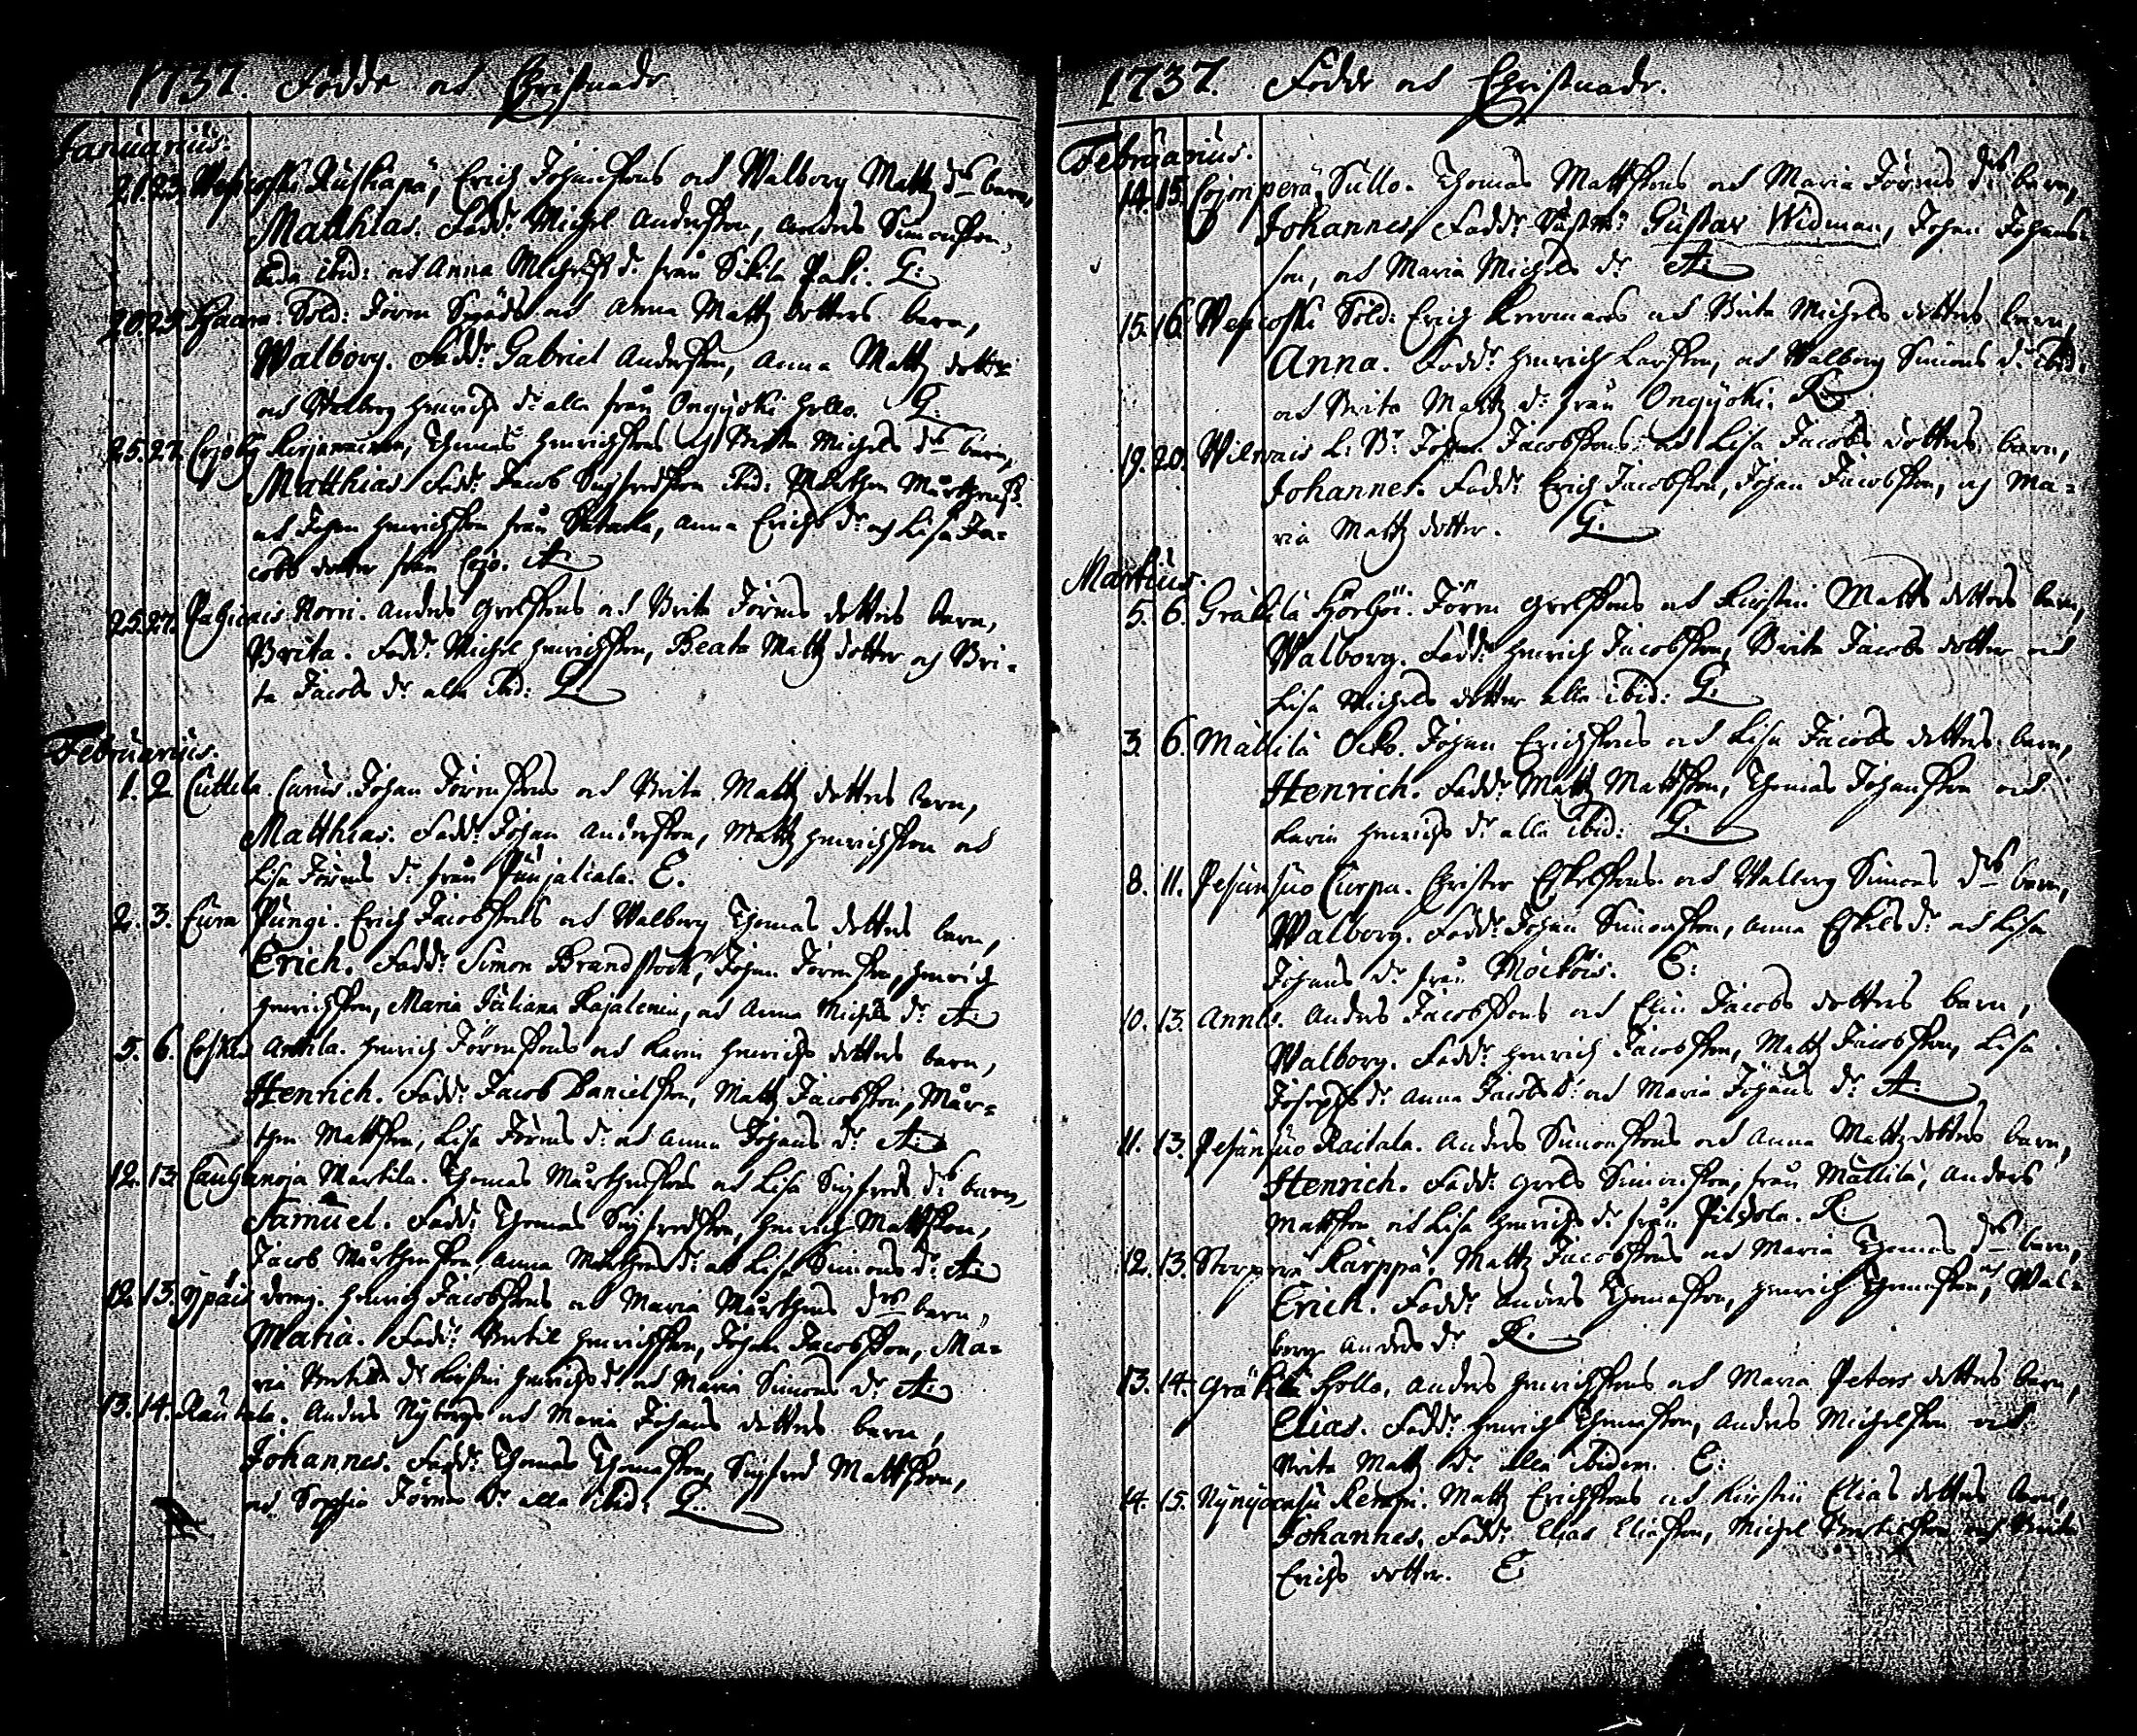 1737. Födde och Christnade
Januarius.
21. 23. Wepikoski Ruskapä, Erich Johanssons och Walborg Mattz ds barn,
Matthias. Fadd: Michel Andersson, Anders Simonsson,
ibid: och Anna Michels d: från Sikila Paki. G:
20. 23. Haara. Sold: Jören Spads och Anna Mattz dotters barn,
Walborg. Fadd: Gabriel Andersson, Anna Mattz dotter
och Walborg Henrichs d: alla från Ongijoki Hollo. G:
25. 27. Thomas Henrichssons och Brita Michels ds barn,
Matthias. Fadd: Jacob Sigfredsson ibid: Mårthen Mårthensson
och Johan Henrichsson från Anna Erichs d: och Lisa Ja=
cobs dotter från Cojo. A:
25. 27. Norri. Anders Grelssons och Brita Jörens dotters barn,
Brita. Fadd: Michel Henrichsson, Beata Mattz dotter och Bri=
ta Jacobs d: alla ibid: G:
Februarius.
1. 2. Cuttila. Johan Jörenssons och Brita Mattz dotters barn,
Matthias. Fadd: Johan Andersson, Mattz Henrichsson och
Lisa Jörens d: från Punjalaiala. E.
2. 3. Eura Pungi. Erich Jacobssons och Walborg Thomas dotters barn,
Erich. Fadd: Simon Brandstock, Johan Jörensson, Henrich
Henrichsson, Maria Juliana Kajalenia, och Anna Michels d: A:
5. 6. Coskis Anttila. Henrich Jörenssons och Karin Henrichs dotters barn,
Henrich. Fadd: Jacob Danielsson, Mattz Jacobsson, Mår=
then Mattsson, Lisa Jörens d: och Anna Johans d: A:
12. 13. Cauhanoja Martila. Thomas Mårthenssons och Lisa Sigfreds ds barn,
Samuel. Fadd: Thomas Sigfredsson, Henrich Mattsson,
Jacob Mårthensson, Anna Mårthens d: och Lisa Simons d: A:
12. 13. Ypäis dreng. Henrich Jacobssons och Maria Mårthens ds barn,
Maria. Fadd: Bertil Henrichsson, Johan Jacobsson, Ma=
ria Bertils d: Kirstin Henrichs d: och Maria Simons d: A:
13. 14. Raukala. Anders Nybergs och Maria Johans dotters barn,
Johannes. Fadd: Thomas Thomasson, Sigfred Mattsson,
och Sophia Jörens d: alla ibid: G:
1737. Födde och Christnade.
Februarius.
14. 15. Cojonperä, Sullo. Thomas Mattssons och Maria Jörens ds barn,
Johannes. Fadd: Gustav Widman, Johan Johans=
son, och Maria Michels d: A:
15. 16. Wepikoski Sold: Erich och Brita Michels dotters barn,
Anna. Fadd: Henrich Larsson, och Walborg Simons d: ibid:
och Brita Mattz d: från Ongijoki. R:
19. 20. Wilwais L: Br: Johan Jacobssons och Lisa Jacobs dotters barn,
Johannes. Fadd: Erich Jacobsson, Johan Jacobsson, och Ma=
ria Mattz dotter. G:
Martius.
5. 6. Gräkilä Hörhöi. Jören Grelssons och Kirstin Matts dotters barn,
Walborg. Fadd: Henrich Jacobsson, Brita Jacobs dotter och
Lisa Michels dotter alla ibid: G:
3. 6. Mällilä Ocko. Johan Erichssons och Lisa Jacobs dotters barn,
Henrich. Fadd: Mattz Mattsson, Thomas Johansson och
Karin Henrichs d: alla ibid: G:
8. 11. Pesänsuo Curpa. Christer Eskelssons och Walborg Simons ds barn,
Walborg. Fadd: Johan Simonsson, Anna Eskels d: och Lisa
Johans d: från Mäcköis. E:
10. 13. Annis. Anders Jacobssons och Elin Jacobs dotters barn,
Walborg. Fadd: Henrich Jacobsson, Mattz Jacobsson, Lisa
Josephs d: Anna Jacobs d: och Maria Johans d: A:
11. 13. Pesänsuo Raitala. Anders Simonssons och Anna Mattz dotters barn,
Henrich. Fadd: Grels Simonsson, från Mällilä, Anders
Mattsson och Lisa Henrichs d: från Pildola. R:
12. 13. Sorpera Kärppä. Mattz Jacobssons och Maria Thomas ds barn,
Erich. Fadd: Anders Thomasson, Henrich Thomasson, och Wal=
borg Anders d: R:
13. 14. Gräkilä Hollo. Anders Henrichssons och Maria Peters dotters barn,
Elias. Fadd: Henrich Thomasson, Anders Michelsson och
Brita Mattz d: alla ibidem. E:
14. 15. Mattz Erichssons och Kirstin Elias dotters barn,
Johannes. Fadd: Elias Eliasson, Michel Bertilsson och Brita
Erichs dotter. E: